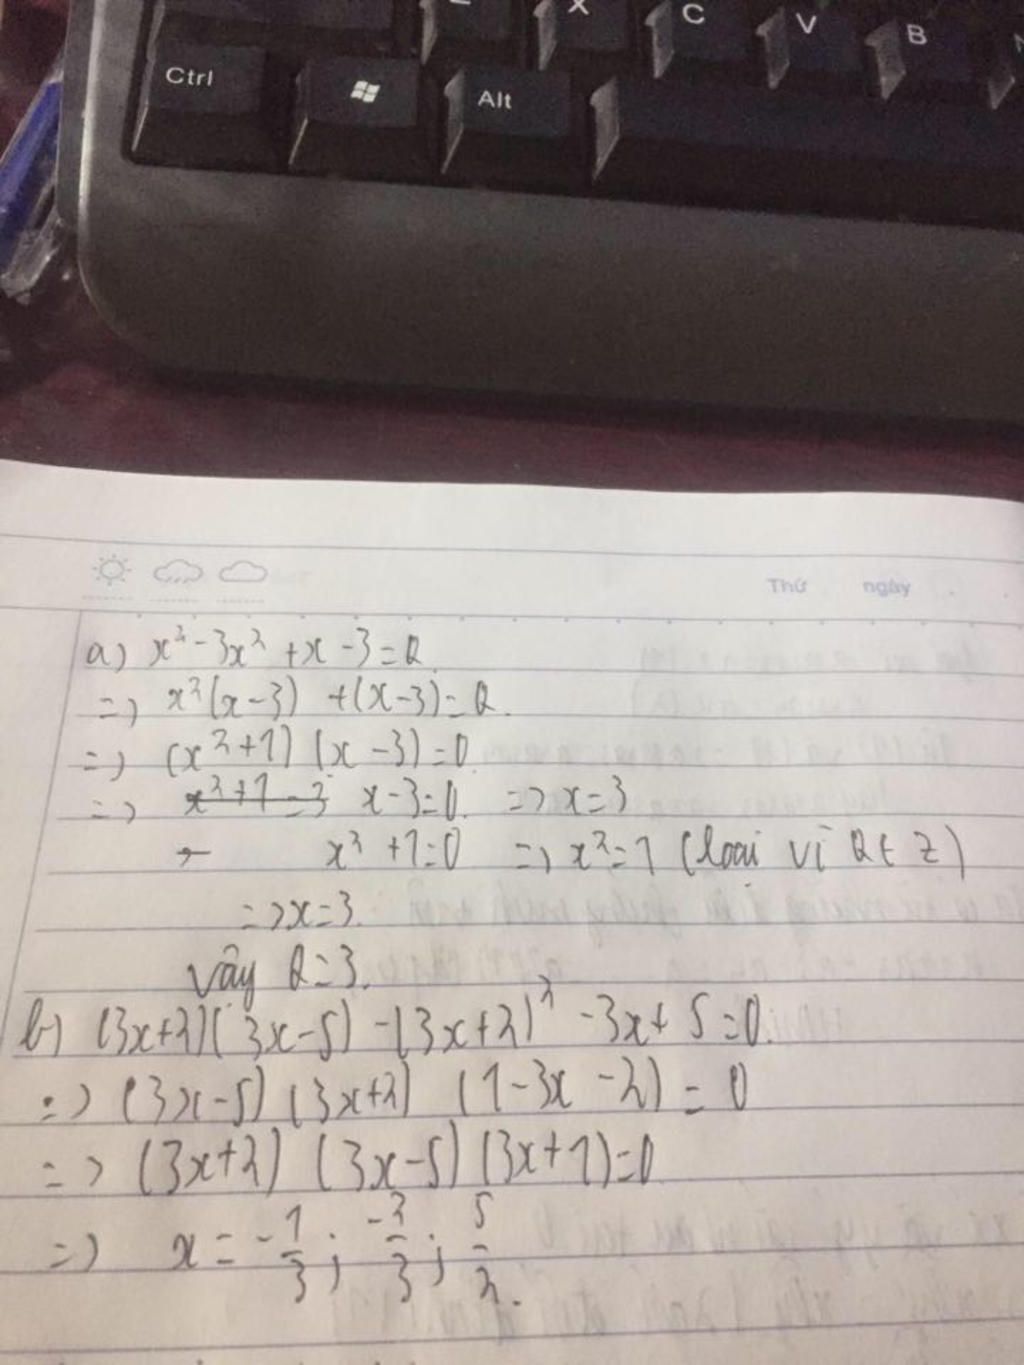 X C V B
Ctrl Alt
Thứ ngày
a) x³ - 3x² + x - 3 = 0
=> x²(x-3) + (x-3) = 0.
=> (x²+1) (x-3) = 0
=> x²+1=3 x-3=0. => x=3
x²+1=0 => x²=1 (loại vì
=> x=3.
Vậy =3.
b) (3x+2)(3x-5) - (3x+2)² - 3x + 5 = 0.
=> (3x-5) (3x+2) (1-3x-2) = 0
=> (3x+2) (3x-5) (3x+1)=0
=> x = -1/3 ; -2/3 ; 5/2.